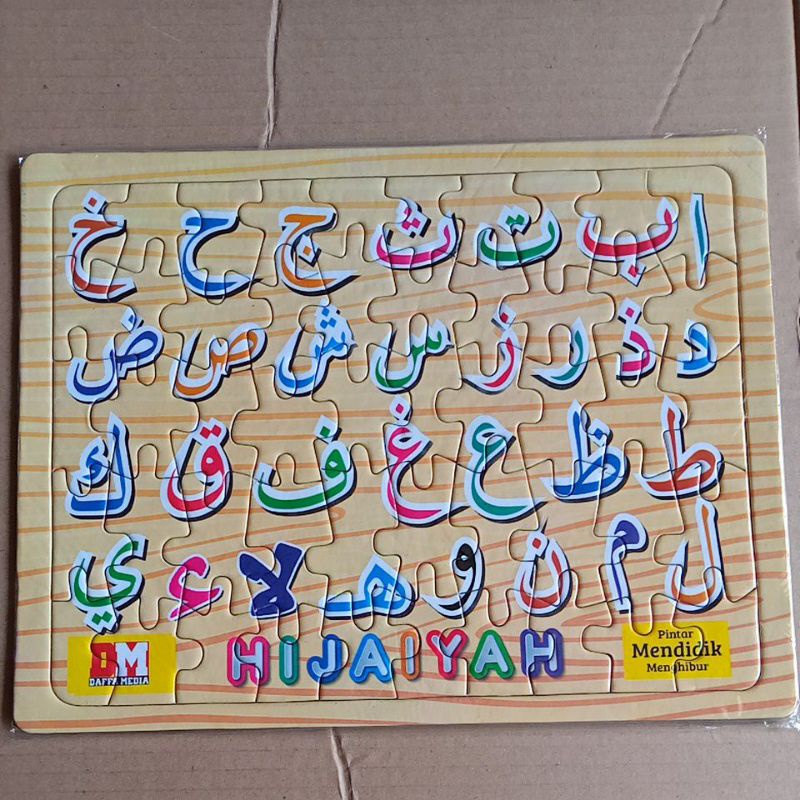 ا ب ت ث ج ح خ
د ذ ر ز س ش ص ض
ط ظ ع غ ف ق ك
ل م ن و هـ لا ء ي
DM
DAFFA MEDIA
HIJAIYAH
Pintar
Mendidik
Menghibur